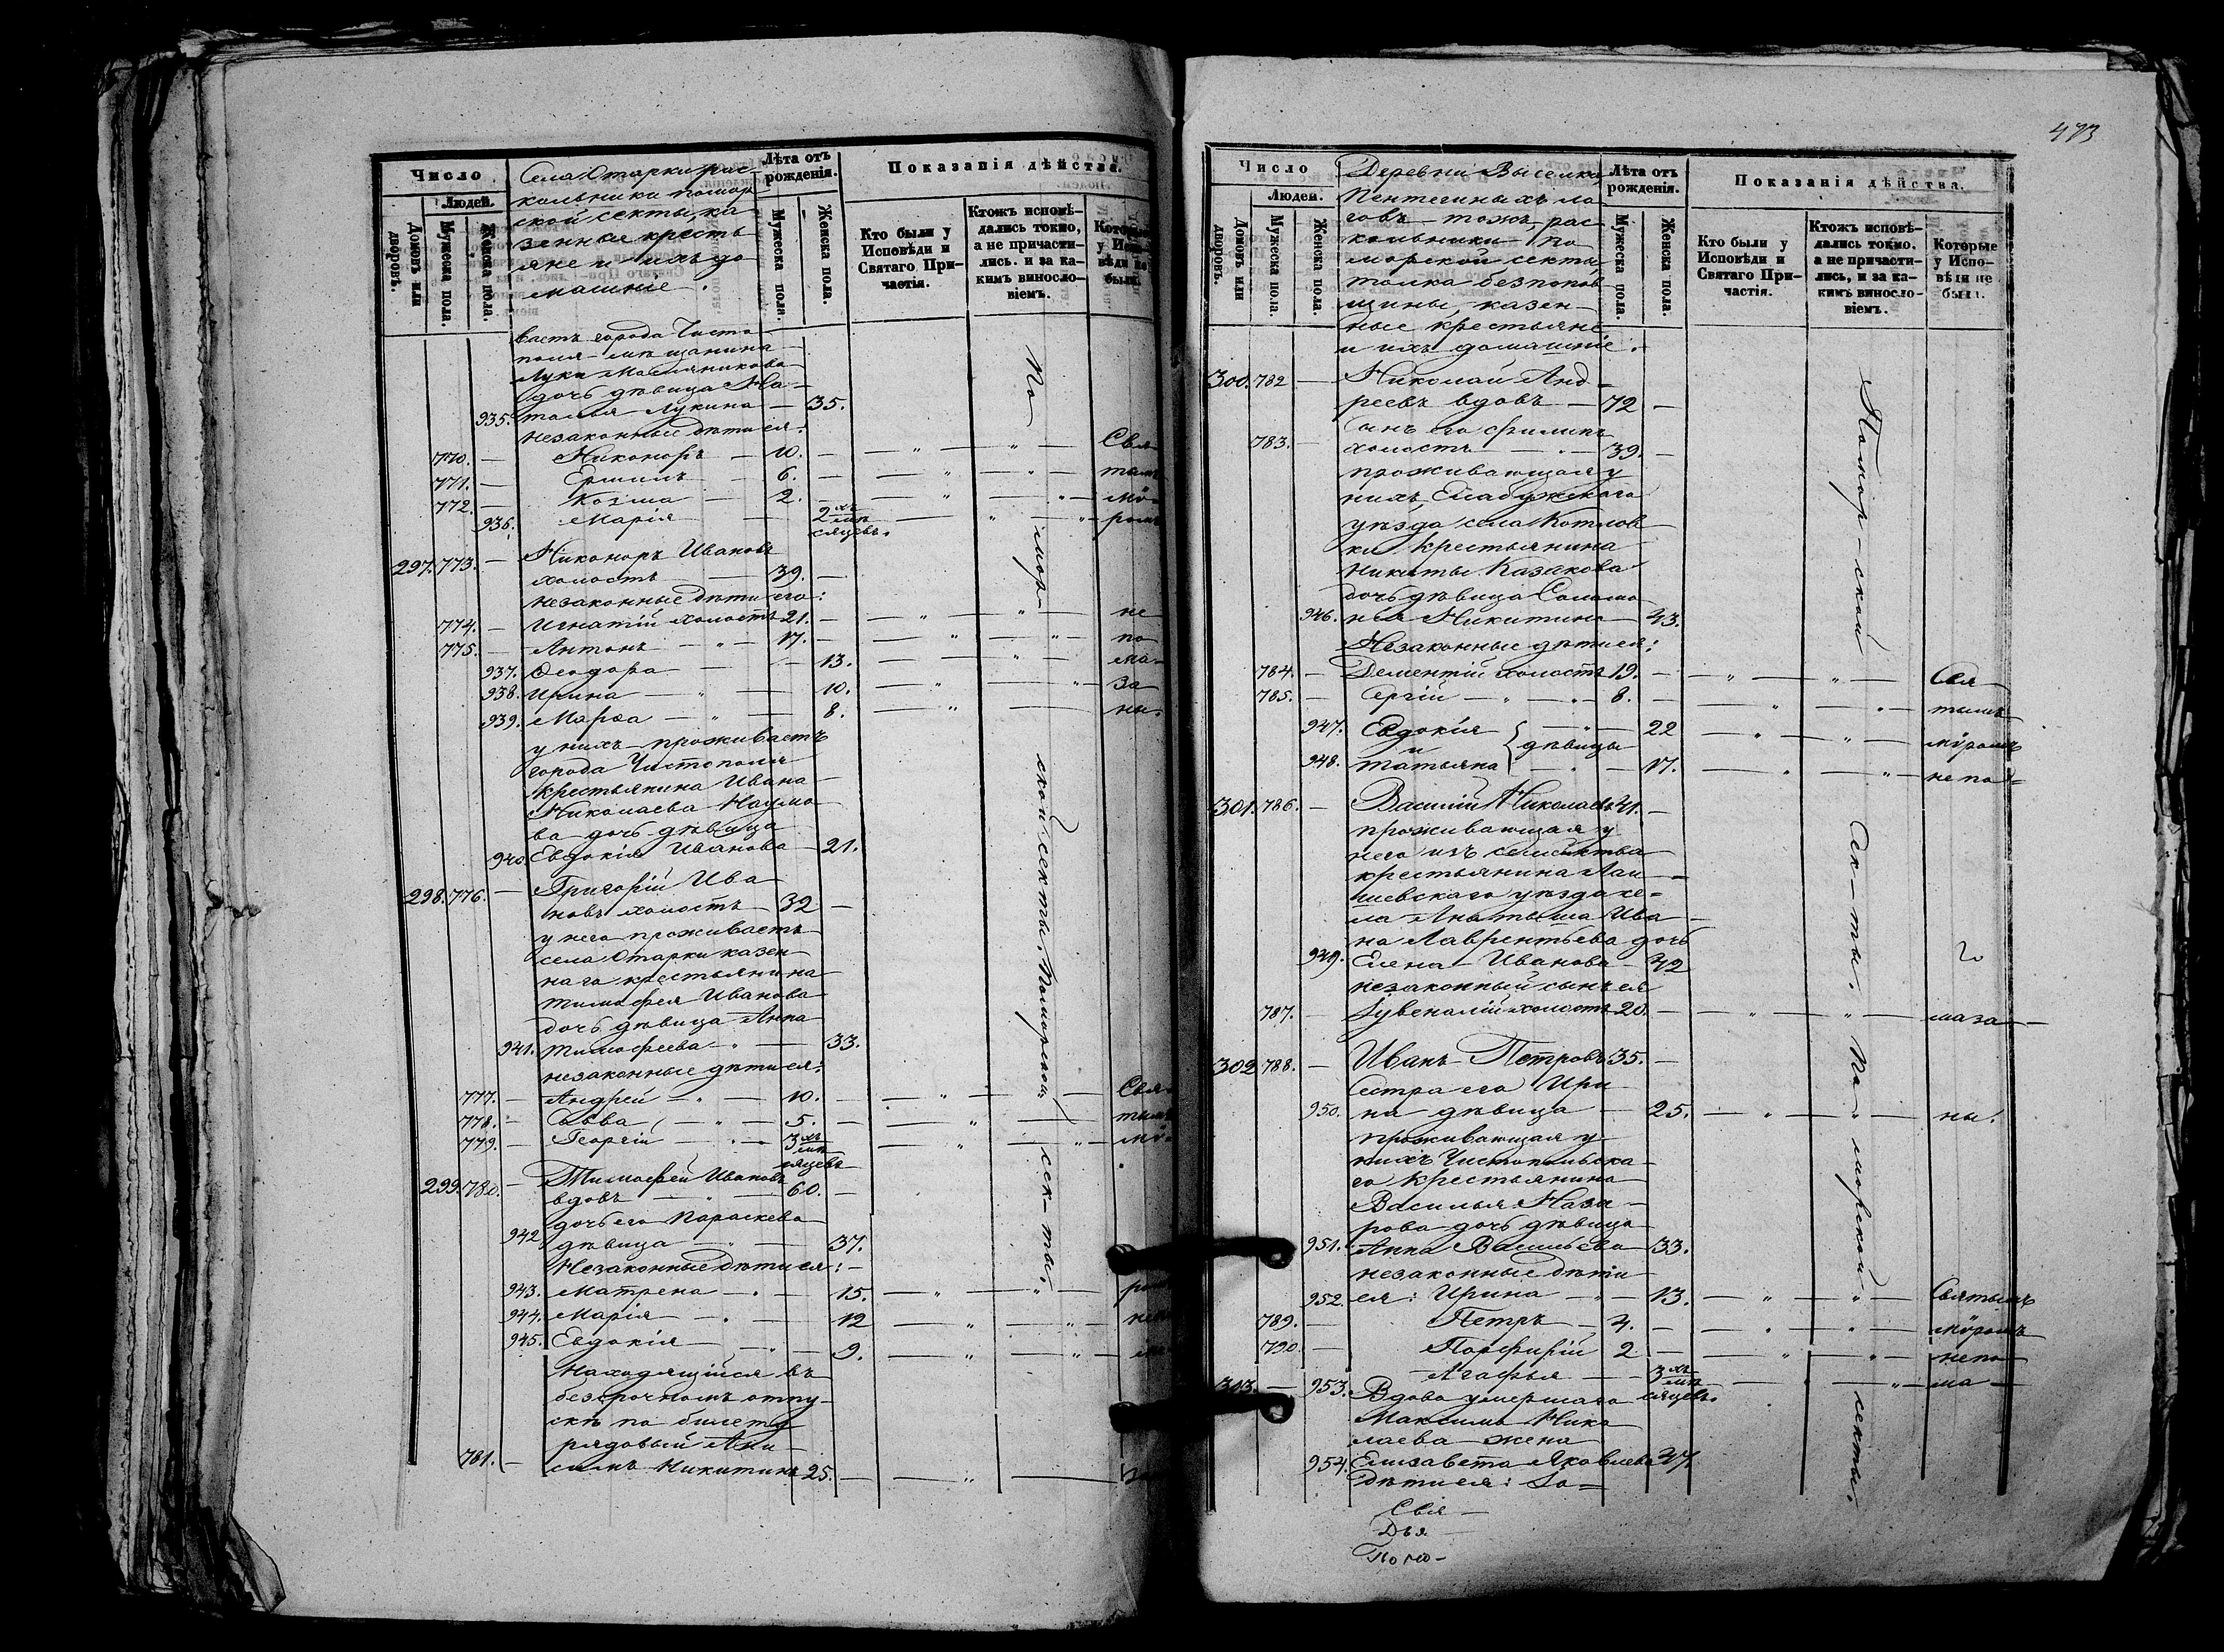 Число
Людей.
Домовъ или дворовъ.
Мужеска пола.
Женска пола.
Села Старки рас-
кольники помор
ской секты, ка-
зенные кресть-
яне и ихъ до
машніе.
Лѣта отъ рожденія.
Мужеска пола.
Женска пола.
Показанія дѣйства.
Кто были у Исповѣди и Святаго При-частія.
Ктожъ исповѣ-дались токмо, а не причасти-лись. и за ка-кимъ виносло-віемъ.
Которые у Испо-вѣди не были.
ваетъ города Чисто-
поля мѣщанина
Луки Масляникова
дочь дѣвица На-
935. талья Лукина — 35.
незаконные дѣти ея:
770. — Никаноръ — 10. — Свя-
771. — Ермилъ — 6. — тымъ
772. — Козма — 2. — мѵ-
936. Марія — 2 хъ мѣ-сяцевъ. — ромъ
297. 773. — Никоноръ Ивановъ
холостъ — 39. —
незаконные дѣти его:
774. — Игнатій холостъ 21. — не
775. — Антонъ — 17. — по
937. Ѳеодора — 13. — ма-
938. Ирина — 10. — за
939. Марѳа — 8. — ны.
у нихъ проживаетъ
города Чистополя
крестьянина Ивана
Николаева Наумо-
ва дочь дѣвица
940. Евдокія Иванова 21.
298. 776. — Григорій Ива-
новъ холостъ — 32 —
у него проживаетъ
села Старки казен-
наго крестьянина
Тимофея Иванова
дочь дѣвица Анна
941. Тимофеева — 33.
незаконные дѣти ея:
777. — Андрей — 10. — Свя-
778. — Савва — 5. — тымъ
779. — Георгій — 3 хъ мѣ-сяцевъ — мѵ-
299. 780. — Тимофей Ивановъ
вдовъ — 60. —
дочь его Параскева
942. дѣвица — 37.
Незаконные дѣти ея: —
943. Матрена — 15.
944. Марія — 12
945. Евдокія — 9.
Находящійся въ
безсрочномъ отпу-
скѣ по билету
рядовый Ани-
781. — симъ Никитинъ 25. —
По-мор-ской секты. Поморской сек-ты.
473
Число
Людей.
Домовъ или дворовъ.
Мужеска пола.
Женска пола.
Деревни Выселка
Пентегиныхъ ло
говъ тожъ, рас
кольники по
морской секты
толка безпопов
щины, казен-
ные крестьяне
и ихъ домашніе.
Лѣта отъ рожденія.
Мужеска пола.
Женска пола.
Показанія дѣйства.
Кто были у Исповѣди и Святаго При-частія.
Ктожъ исповѣ-дались токмо. а не причасти-лись, и за ка-кимъ виносло-віемъ.
Которые у Испо-вѣди не были.
300. 782 — Николай Анд-
реевъ вдовъ — 72 —
783. — Сынъ его Филипъ
холостъ — 39. —
проживающая у
нихъ Елабужскаго
уѣзда села Котлов
ки крестьянина
Никиты Казакова
дочь дѣвица Соломо
946. нея Никитина 43.
Незаконные дѣти ея:
784. — Дементій холостъ 19. — Свя-
785. — Сергій — 8. — тымъ
947. Евдокія — 22 — мѵромъ
и } дѣвицы
948. Татьяна — 17. — не по-
301. 786. — Василій Николаевъ 41. —
проживающая у
него изъ семейства
крестьянина Лаи-
шевскаго уѣзда се-
ла Анатыша Ива-
на Лаврентьева дочь
949. Елена Иванова 42
незаконный сынъ ея
787. — Іувеналій холостъ 20. — маза-
302. 788. — Иванъ Петровъ 35. —
Сестра его Ири
950. на дѣвица — 25. — ны.
проживающая у
нихъ Чистопольска-
го крестьянина
Василья Наза-
рова дочь дѣвица
951. Анна Васильева 33.
незаконные дѣти
952. ея: Ирина — 13. — Святымъ
789. — Петръ — 4. — мѵромъ
790. — Порфирій 2 — не по
953. Агафья — 3 хъ мѣ-сяцевъ. — ма-
303. — Вдова умершаго
Максима Нико
лаева жена
954. Елизавета Яковлева 47.
дѣти ея:
Помор-ской Сек-ты. По-морской секты.
Свя-
Дья
Поно-